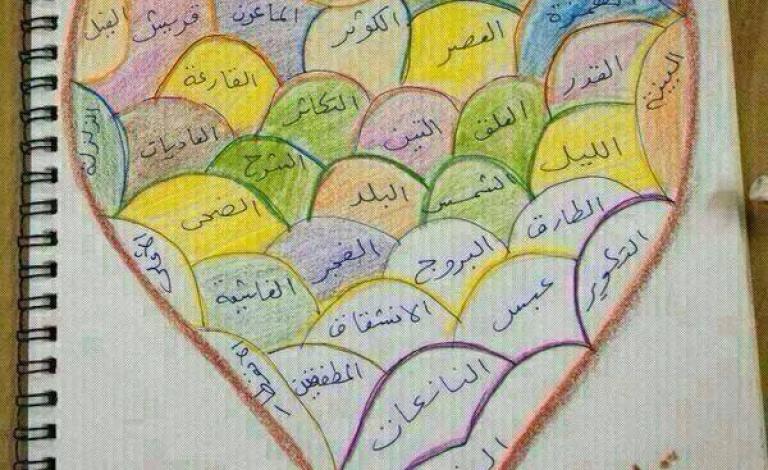 الهمزة
العصر
الكوثر
الماعون
قريش
الفيل
البينة
القدر
القارعة
العلق
التين
التكاثر
العاديات
الزلزلة
الليل
الشمس
البلد
الشرح
الضحى
الطارق
البروج
الفجر
الغاشية
الأعلى
التطوير
عبس
الانشقاق
المطففين
الانفطار
النازعات